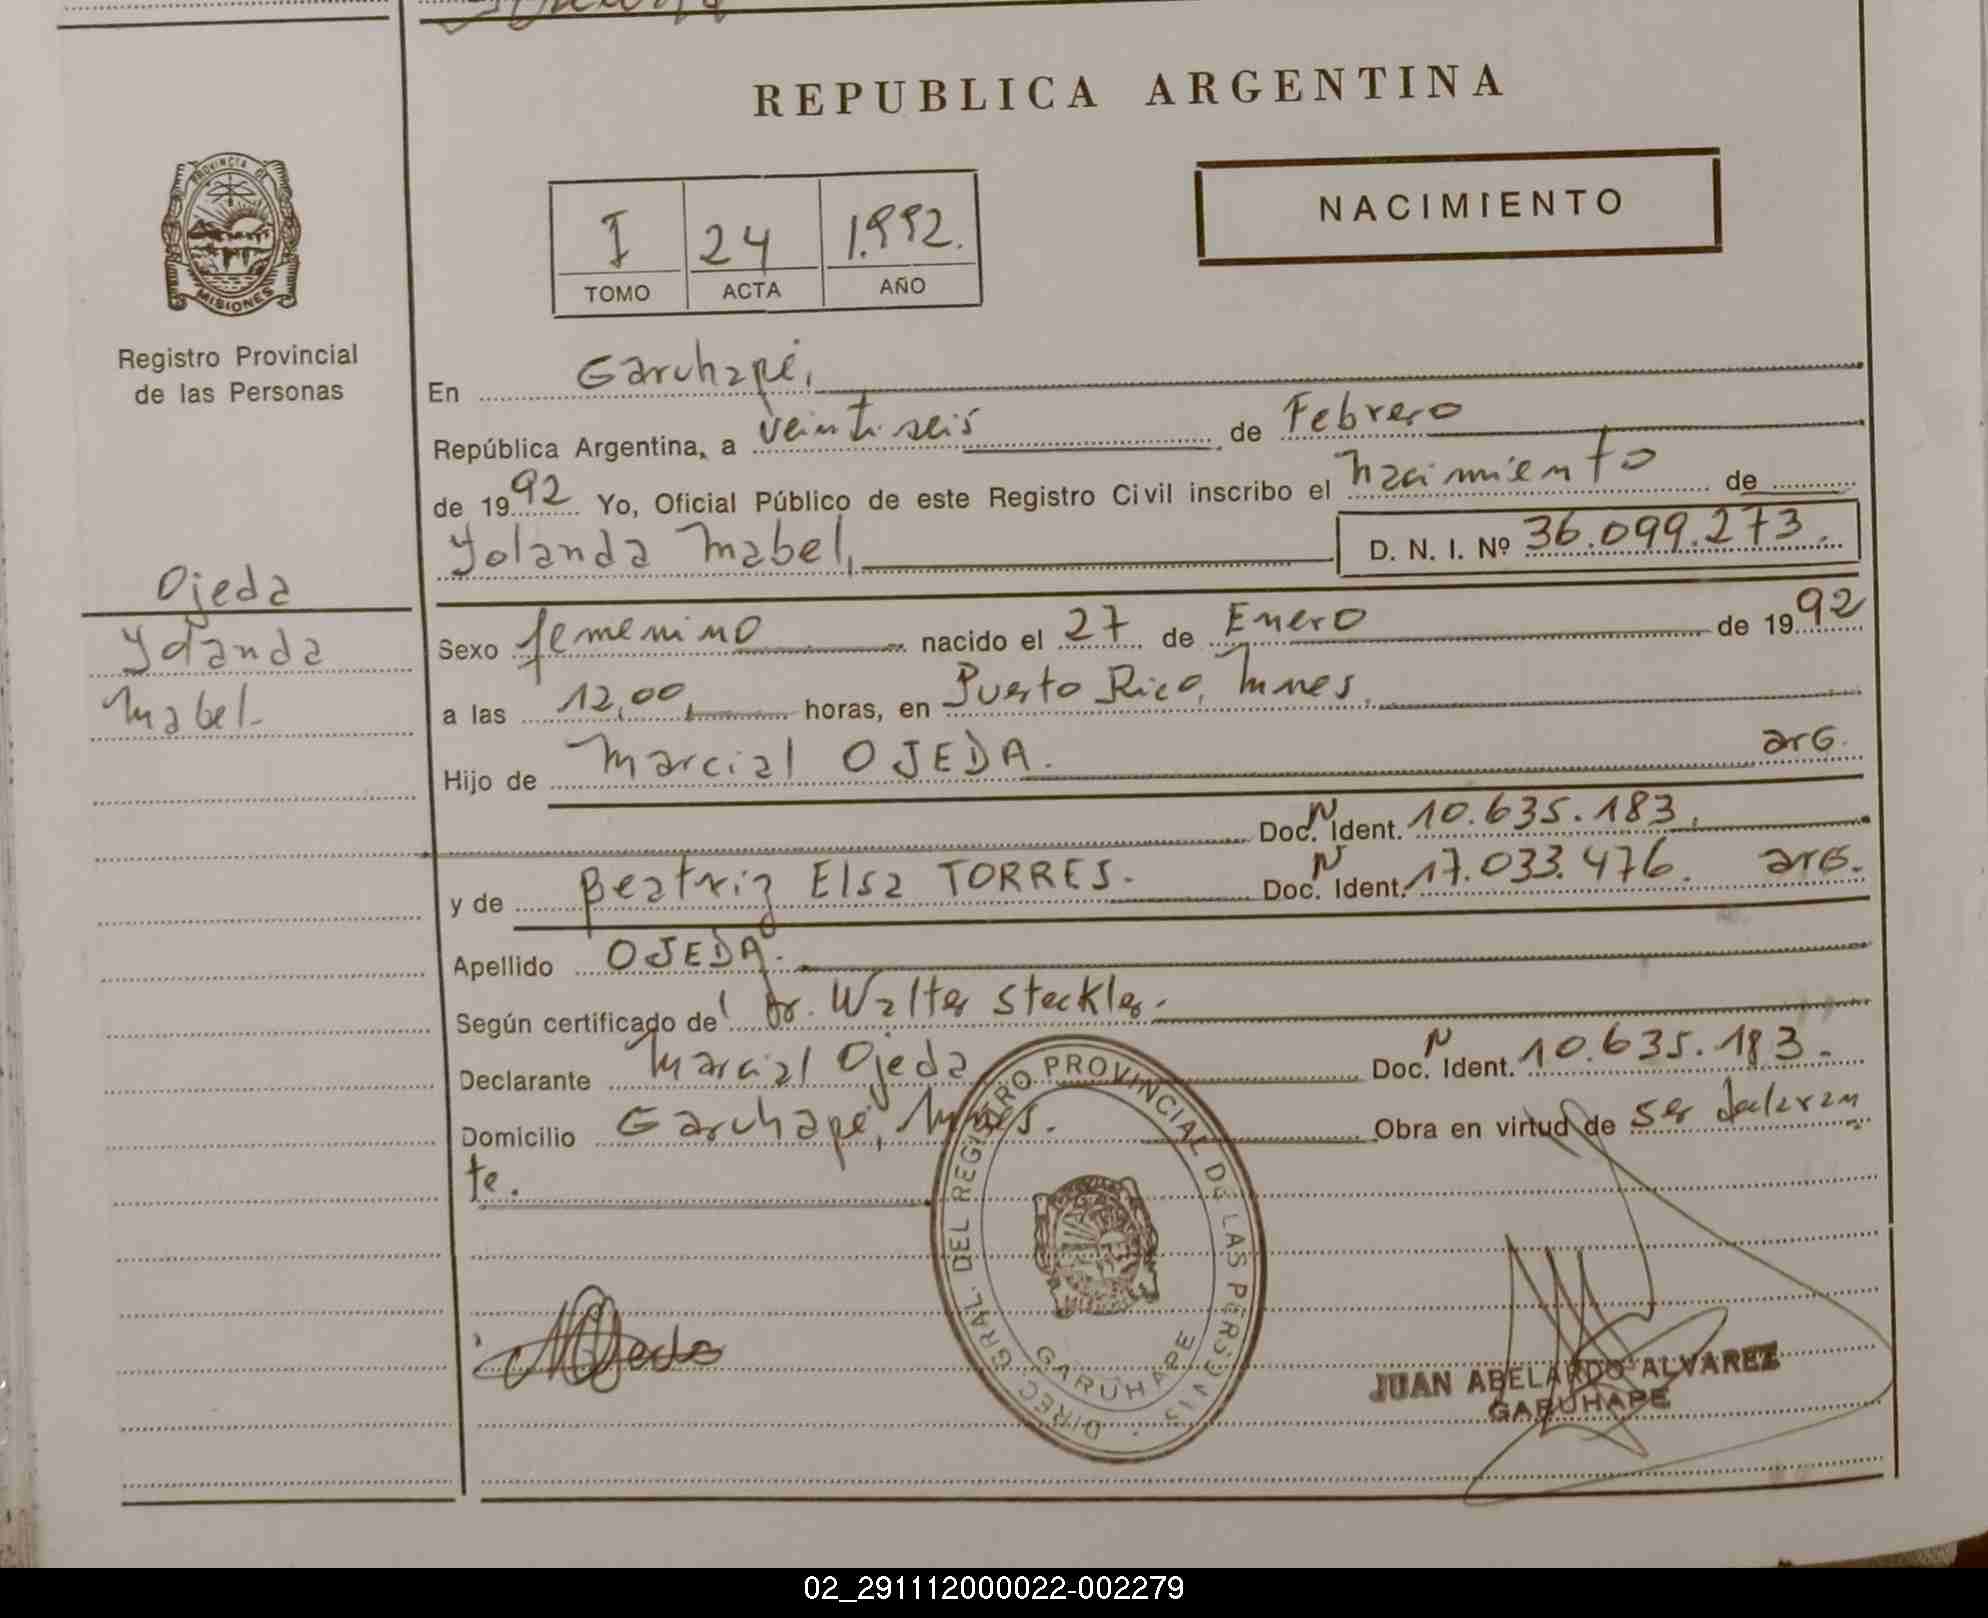 REPUBLICA ARGENTINA
PROVINCIA DE MISIONES
Registro Provincial
de las Personas
I 24 1.992.
TOMO ACTA AÑO
NACIMIENTO
En Garuhapé,
República Argentina, a veintiseis de Febrero
de 1992 Yo, Oficial Público de este Registro Civil inscribo el nacimiento de
Yolanda Mabel, D. N. I. Nº 36.099.273.
Ojeda
Yolanda
Mabel.
Sexo femenino nacido el 27 de Enero de 1992
a las 12,00, horas, en Puerto Rico, Mnes.
Hijo de Marcial OJEDA. arg.
Doc. N Ident. 10.635.183.
y de Beatriz Elsa TORRES. Doc. N Ident. 17.033.476. arg.
Apellido OJEDA.
Según certificado del Dr. Walter Steckler.
Declarante Marcial Ojeda Doc. N Ident. 10.635.183.
Domicilio Garuhapé, Mnes. Obra en virtud de ser declaran
te.
DIREC. GRAL. DEL REGISTRO PROVINCIAL DE LAS PERS.
GARUHAPE
MOjeda
JUAN ABELARDO ALVAREZ
GARUHAPE
02_291112000022-002279